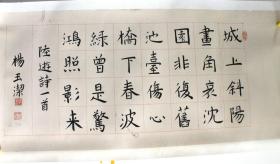 城上斜陽
畫角哀沈
園非復舊
池臺傷心
橋下春波
綠曾是驚
鴻照影来
陸遊詩一首
楊玉潔